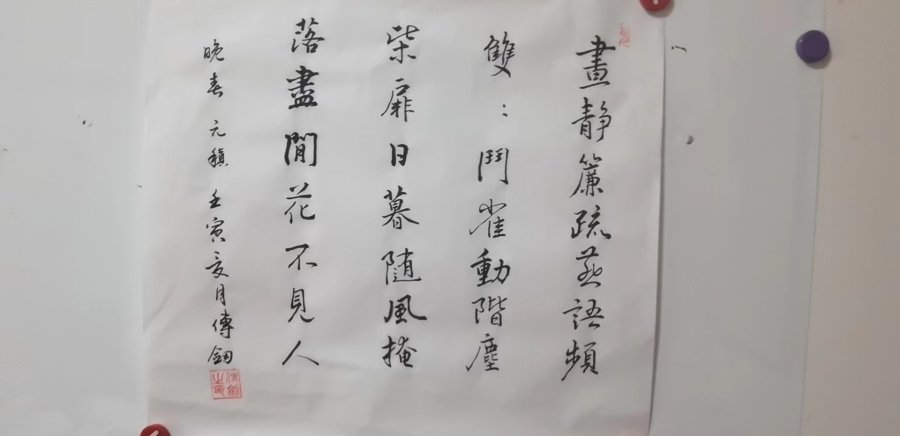 晝靜簾疏燕語頻
雙:鬥雀動階塵
柴扉日暮隨風掩
落盡閒花不見人
晚春 元稹 壬寅夏月傅釼